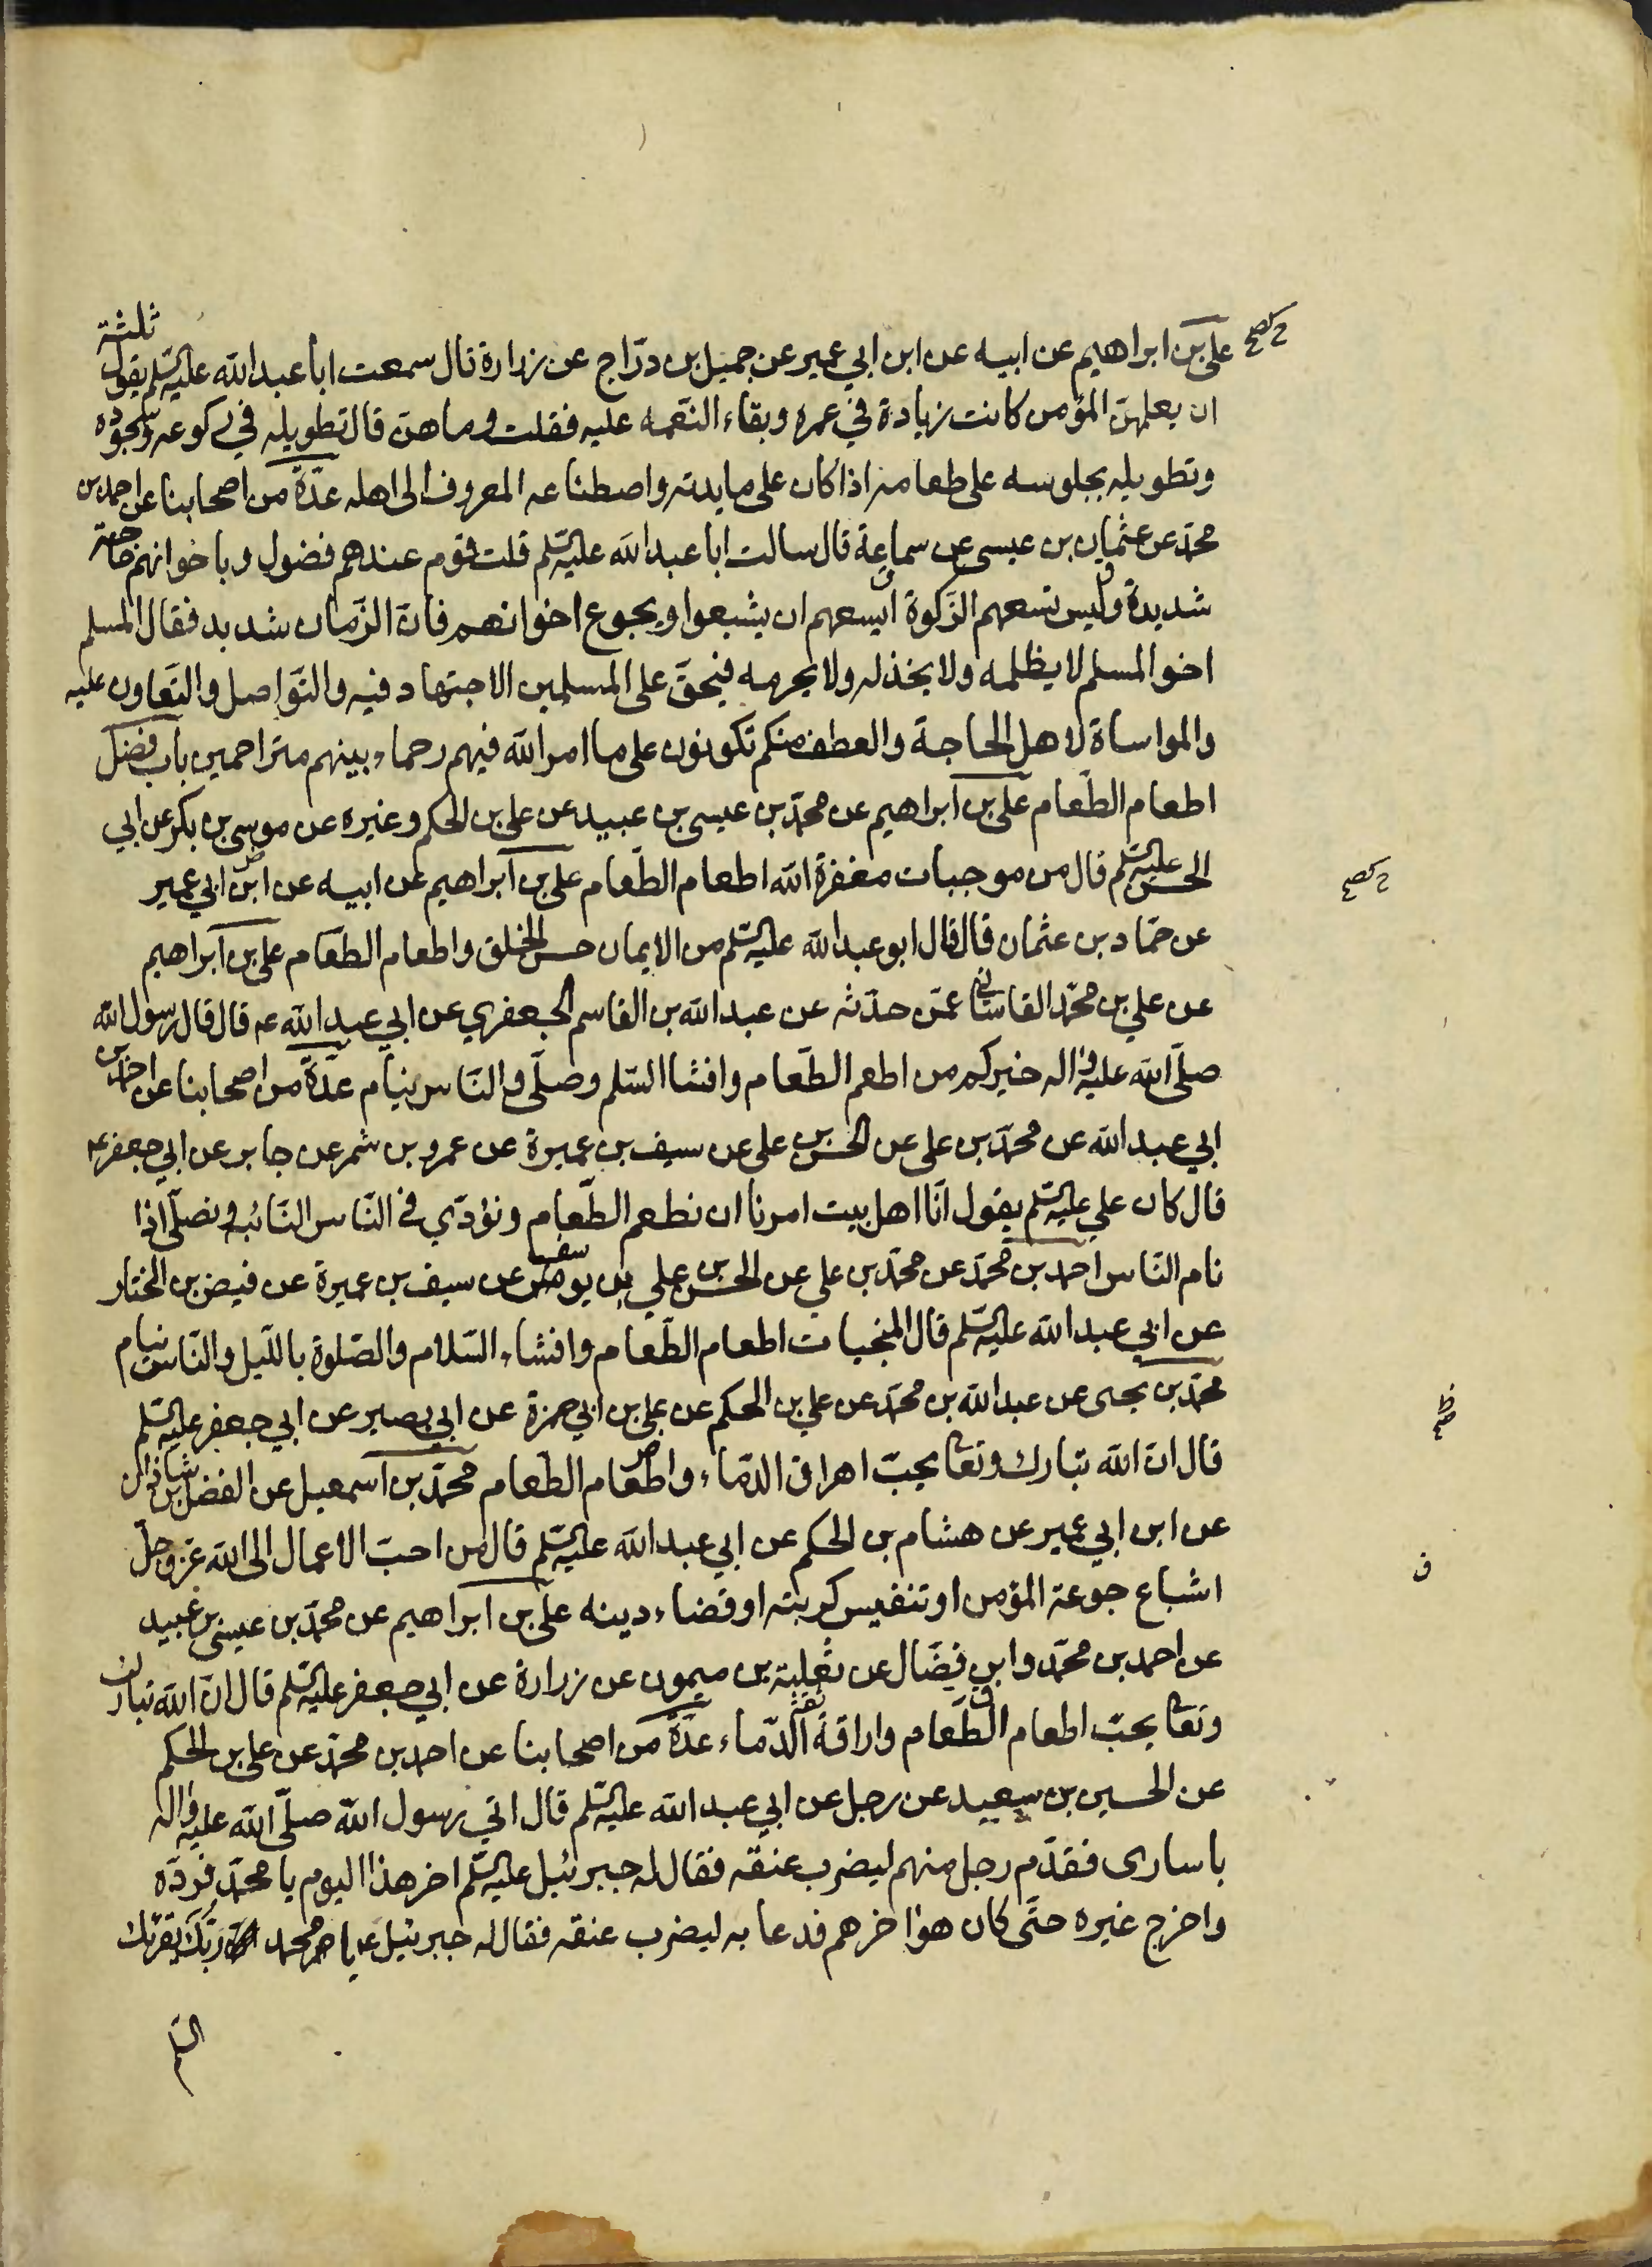 علي بن ابراهيم عن ابيه عن ابن ابي عمير عن جميل بن درّاج عن زرارة قال سمعت ابا عبد الله عليه السّلم يقول ثلثة
ان يعلمهنّ المؤمن كانت زيادة في عمره وبقاء النّعمه عليه فقلت وما هنّ قال تطويله في ركوعه وسجوده
وتطويله بجلوسه على طعامه اذا كان على مايدته واصطناعه المعروف الى اهله عدّة من اصحابنا عن احمد بن
محمّد عن عثمان بن عيسى عن سماعة قال سالت ابا عبد الله عليه السّلم قلت قوم عندهم فضول وباخوانهم حاجة
شديدة وليس تسعهم الزّكوة ايسعهم ان يشبعوا ويجوع اخوانهم فانّ الزّمان شديد فقال المسلم
اخو المسلم لا يظلمه ولا يخذله ولا يحرمه فيحقّ على المسلمين الاجتهاد فيه والتّواصل والتّعاون عليه
والمواساة لاهل الحاجة والعطف منكم تكونون على ما امر الله فيهم رحماء بينهم متراحمين باب فضل
اطعام الطّعام علي بن ابراهيم عن محمّد بن عيسى بن عبيد عن علي بن الحكم وغيره عن موسى بن بكر عن ابي
الحسن عليه السّلم قال من موجبات مغفرة الله اطعام الطّعام علي بن ابراهيم عن ابيه عن ابن ابي عمير
عن حمّاد بن عثمان قال قال ابو عبد الله عليه السّلم من الايمان حسن الخلق واطعام الطّعام علي بن ابراهيم
عن علي بن محمّد القاساني عمّن حدّثه عن عبد الله بن القاسم الجعفري عن ابي عبد الله ع قال قال رسول الله
صلّى الله عليه واله خيركم من اطعم الطّعام وافشا السّلم وصلّى والنّاس نيام عدّة من اصحابنا عن احمد بن
ابي عبد الله عن محمّد بن علي عن الحسن بن علي عن سيف بن عميرة عن عمرو بن شمر عن جابر عن ابي جعفر ع
قال كان علي عليه السّلم يقول انّا اهل بيت امرنا ان نطعم الطّعام ونؤدّي في النّاس النّائبه ونصلّي اذا
نام النّاس احمد بن محمّد عن محمّد بن علي عن الحسن بن علي بن يوسف عن سيف بن عميرة عن فيض بن المختار
عن ابي عبد الله عليه السّلم قال المنجيات اطعام الطّعام وافشاء السّلام والصّلوة باللّيل والنّاس نيام
محمّد بن يحيى عن عبد الله بن محمّد عن علي بن الحكم عن علي بن ابي حمزة عن ابي بصير عن ابي جعفر عليه السّلم
قال انّ الله تبارك وتعا يحبّ اهراق الدّماء واطعام الطّعام محمّد بن اسمعيل عن الفضل بن شاذان
عن ابن ابي عمير عن هشام بن الحكم عن ابي عبد الله عليه السّلم قال من احبّ الاعمال الى الله عزّ وجلّ
اشباع جوعة المؤمن او تنفيس كربته او قضاء دينه علي بن ابراهيم عن محمّد بن عيسى بن عبيد
عن احمد بن محمّد وابن فضّال عن ثعلبة بن ميمون عن زرارة عن ابي جعفر عليه السّلم قال انّ الله تبارك
وتعا يحبّ اطعام الطّعام واراقة الدّماء عدّة من اصحابنا عن احمد بن محمّد عن علي بن الحكم
عن الحسين بن سعيد عن رجل عن ابي عبد الله عليه السّلم قال اتي رسول الله صلّى الله عليه واله
باسارى فقدّم رجل منهم ليضرب عنقه فقال له جبرئيل عليه السّلم اخر هذا اليوم يا محمّد فردّه
واخرج غيره حتّى كان هو اخرهم فدعا به ليضرب عنقه فقال له جبرئيل ع يا محمد ربّك يقرئك
السّلم